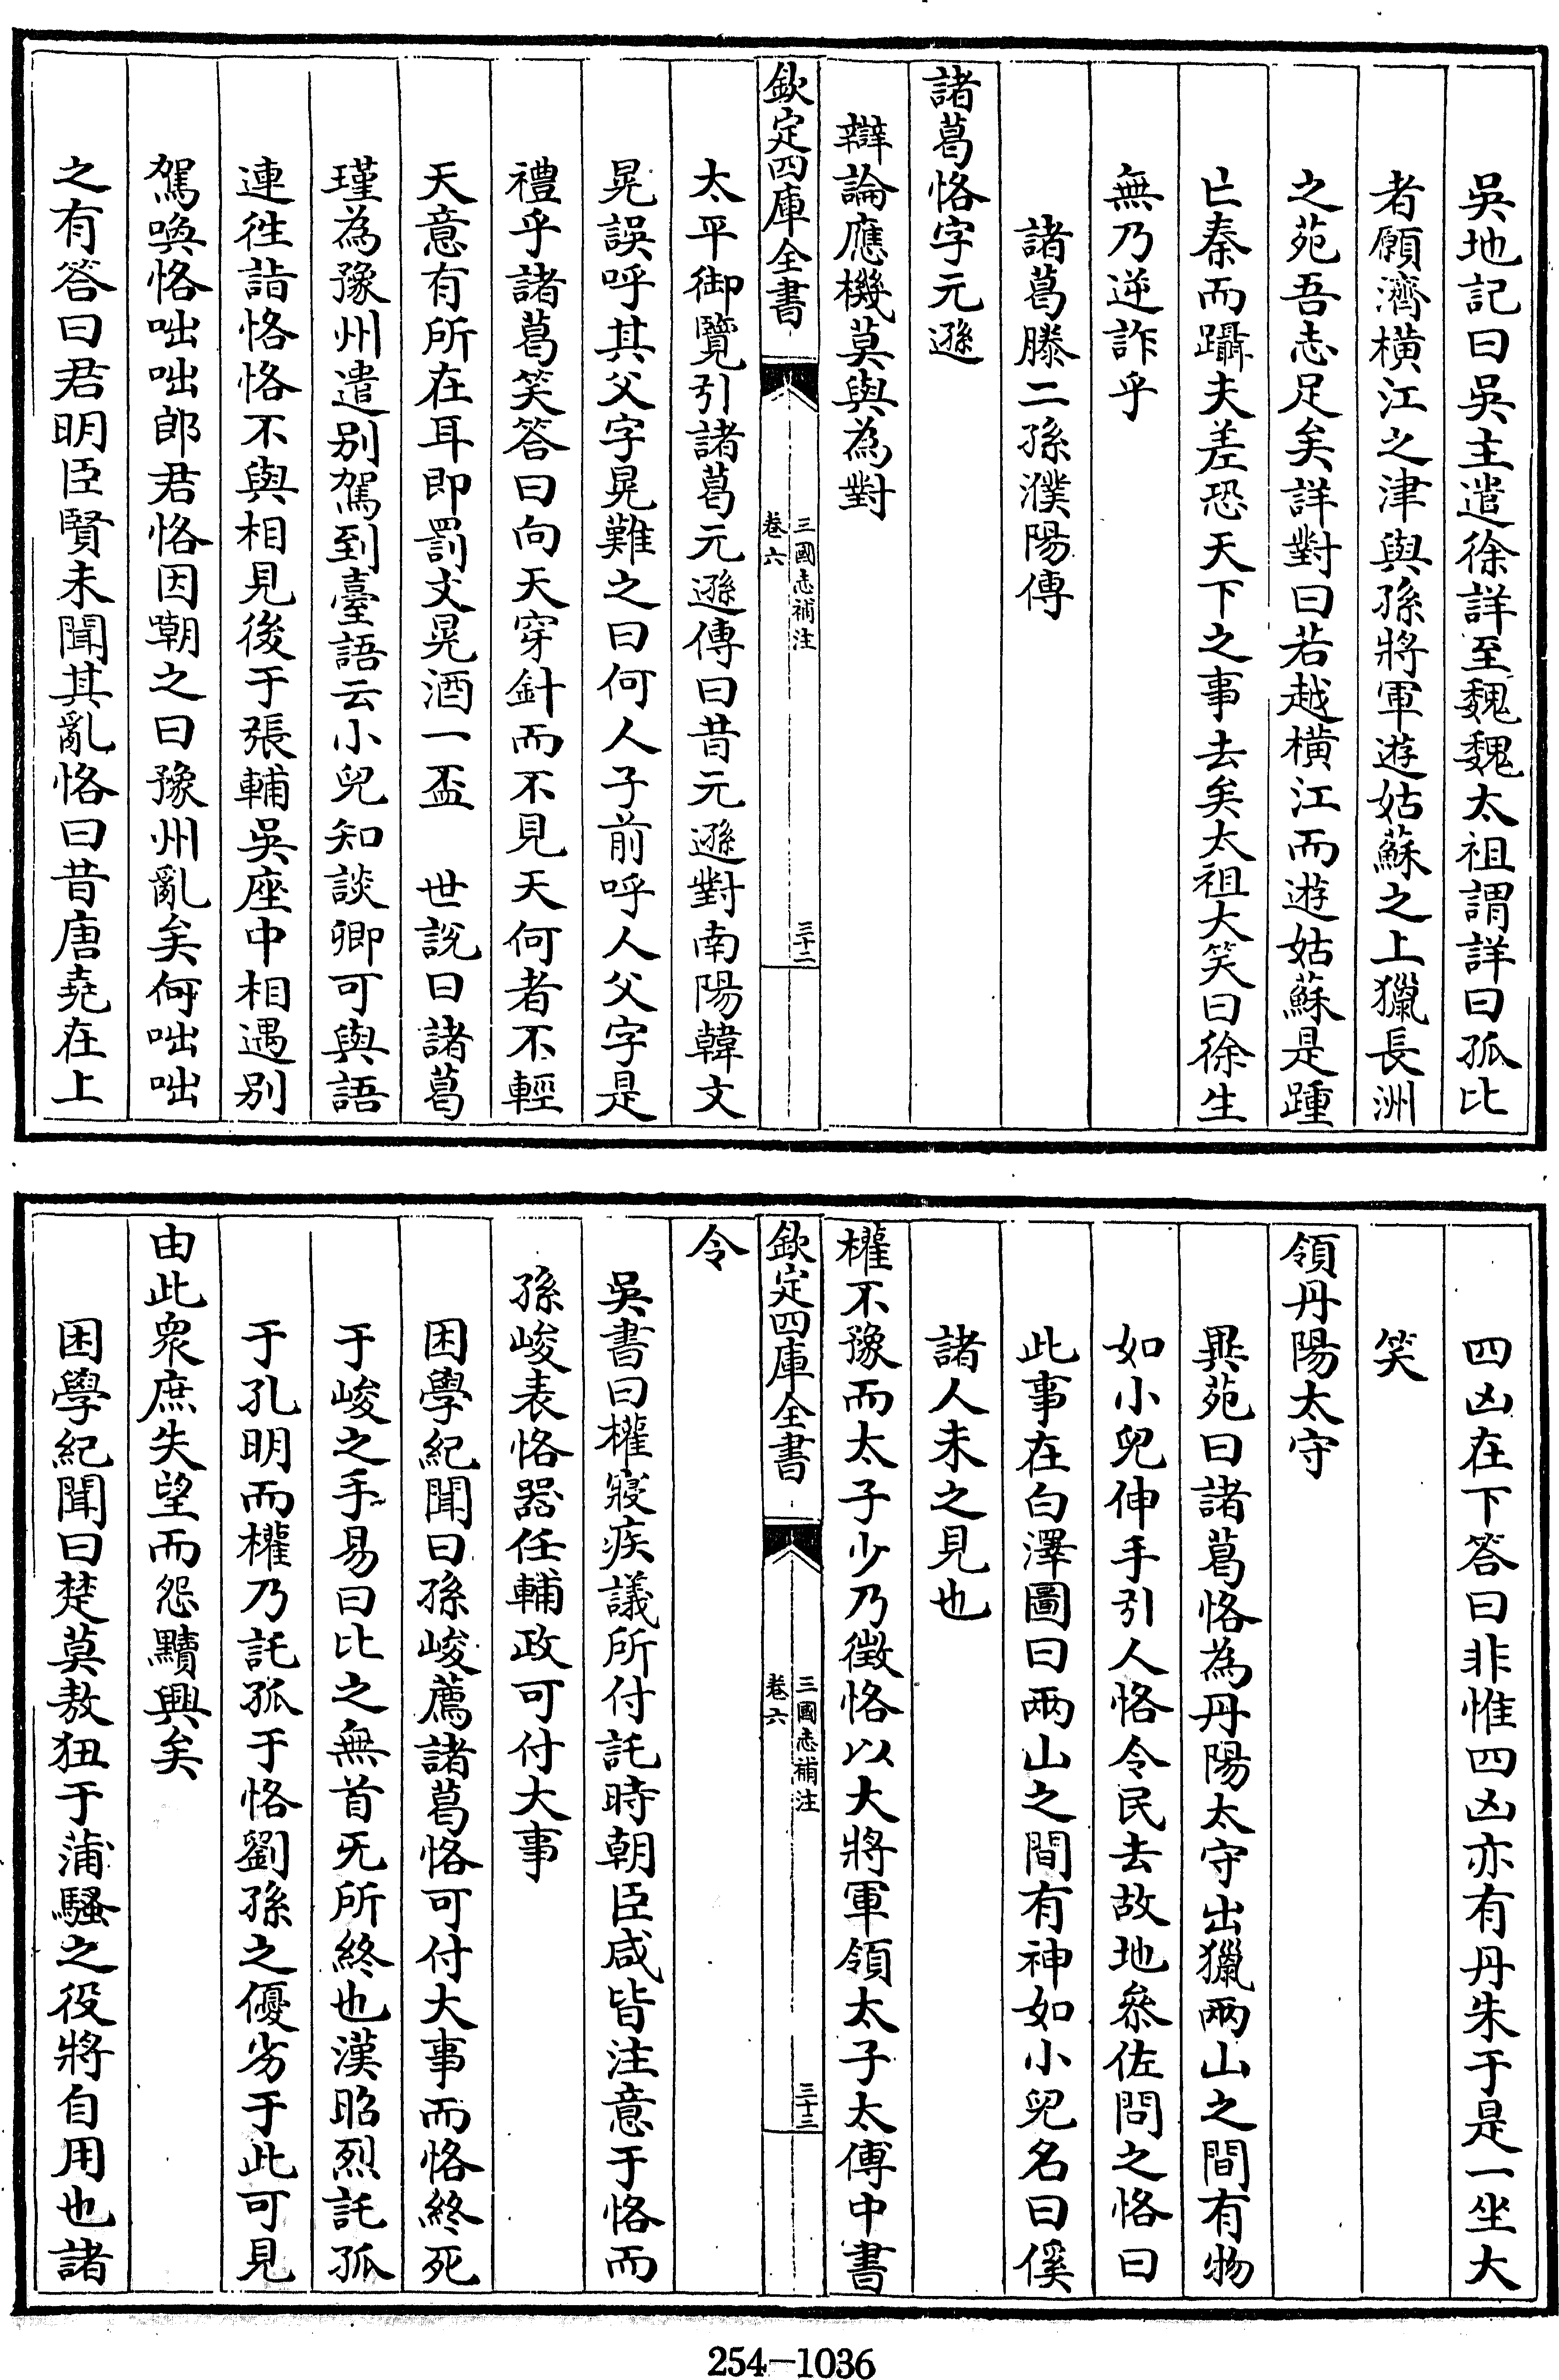 吳地記曰吳主遣徐詳至魏魏太祖謂詳曰孤比
者願濟橫江之津與孫將軍遊姑蘇之上獵長洲
之苑吾志足矣詳對曰若越橫江而遊姑蘇是踵
亡秦而躡夫差恐天下之事去矣太祖大笑曰徐生
無乃逆詐乎
諸葛滕二孫濮陽傳
諸葛恪字元遜
辯論應機莫與為對
欽定四庫全書
三國志補注
卷六
三十二
太平御覽引諸葛元遜傳曰昔元遜對南陽韓文
晃誤呼其父字晃難之曰何人子前呼人父字是
禮乎諸葛笑答曰向天穿針而不見天何者不輕
天意有所在耳即罰文晃酒一盃 世說曰諸葛
瑾為豫州遣別駕到臺語云小兒知談卿可與語
連往詣恪恪不與相見後于張輔吳座中相遇別
駕喚恪咄咄郎君恪因嘲之曰豫州亂矣何咄咄
之有答曰君明臣賢未聞其亂恪曰昔唐堯在上
四凶在下答曰非惟四凶亦有丹朱于是一坐大
笑
領丹陽太守
異苑曰諸葛恪為丹陽太守出獵兩山之間有物
如小兒伸手引人恪令民去故地叅佐問之恪曰
此事在白澤圖曰兩山之間有神如小兒名曰傒
諸人未之見也
權不豫而太子少乃徵恪以大將軍領太子太傅中書
欽定四庫全書
三國志補注
卷六
三十三
令
吳書曰權寢疾議所付託時朝臣咸皆注意于恪而
孫峻表恪器任輔政可付大事
困學紀聞曰孫峻薦諸葛恪可付大事而恪終死
于峻之手易曰比之無首旡所終也漢昭烈託孤
于孔明而權乃託孤于恪劉孫之優劣于此可見
由此衆庶失望而怨黷興矣
困學紀聞曰楚莫敖狃于蒲騷之役將自用也諸
254-1036